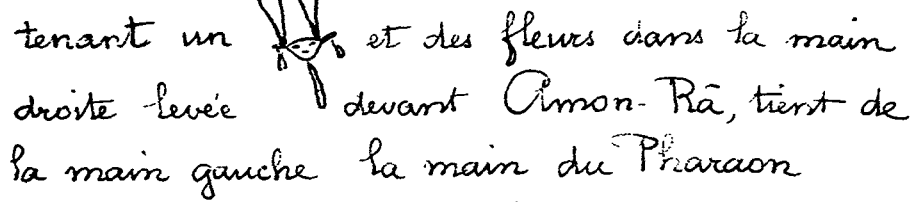 tenant un et des fleurs dans la main
droite levée devant Amon-Rā, tient de
la main gauche la main du Pharaon